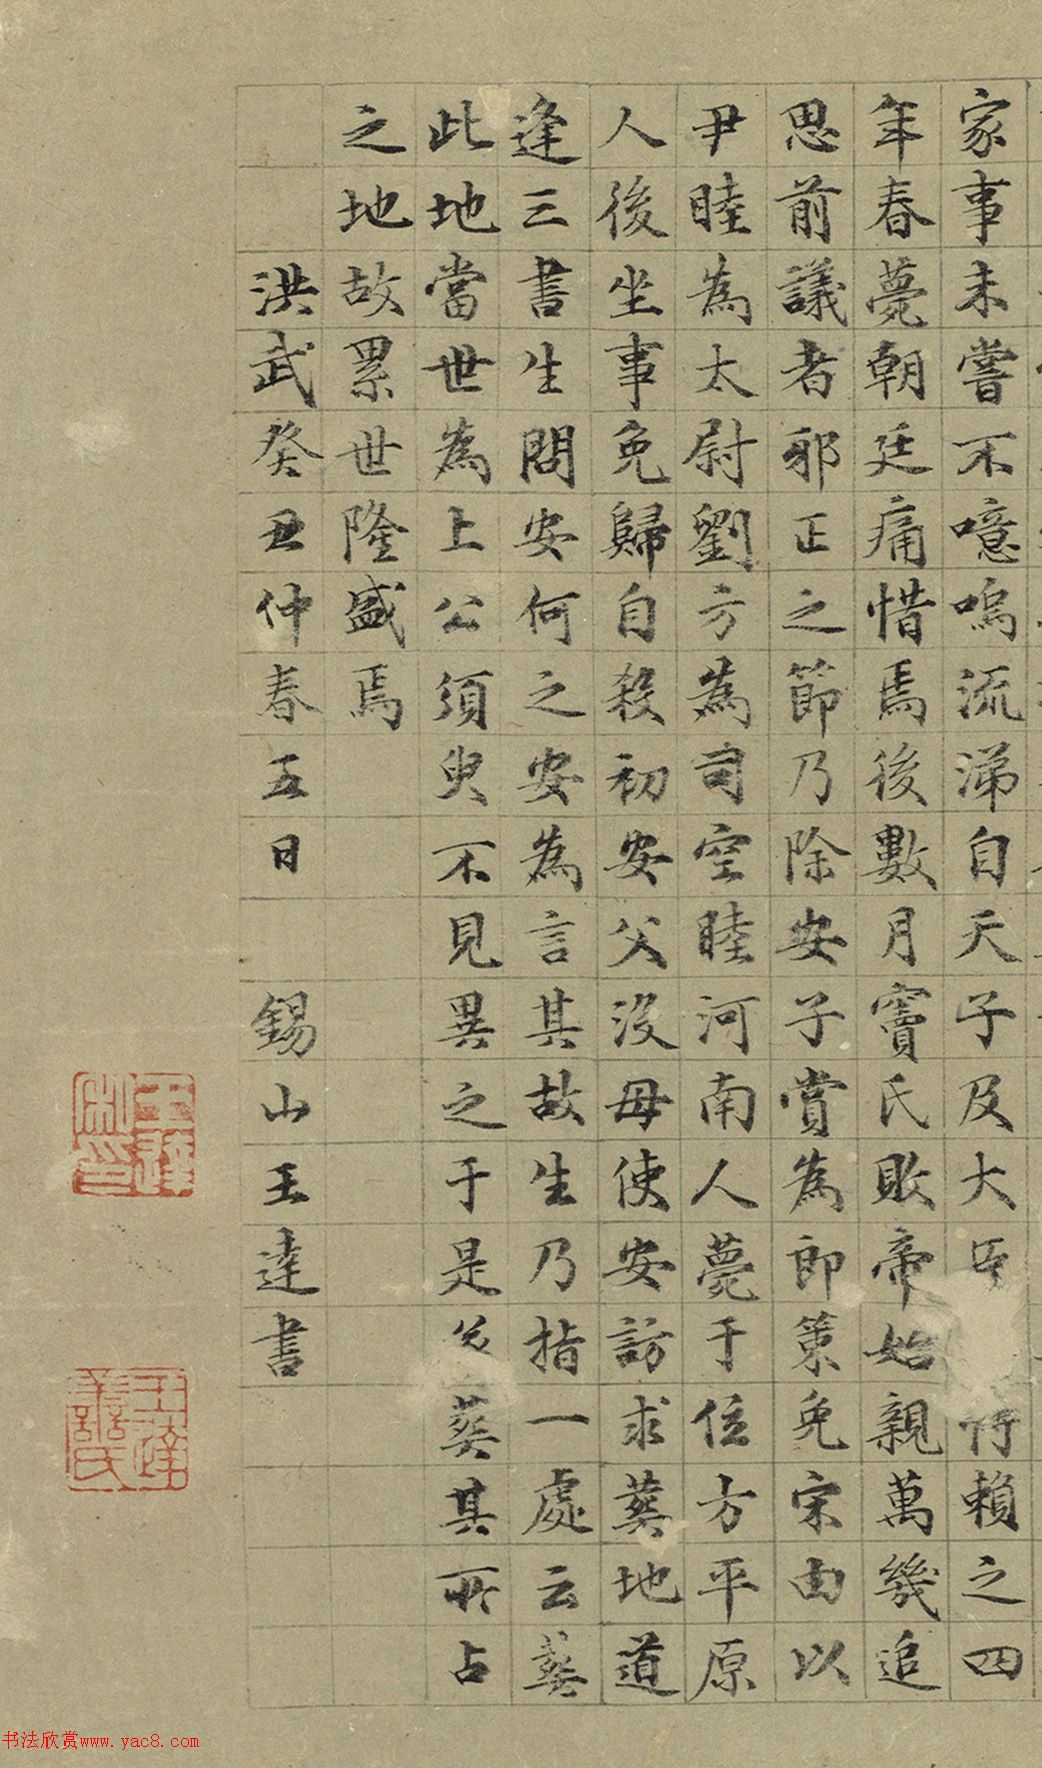 家事未嘗不噫嗚流涕自天子及大臣皆恃賴之四
年春薨朝廷痛惜焉後數月竇氏敗帝始親萬幾追
思前議者邪正之節乃除安子賞為郎策免宋由以
尹睦為太尉劉方為司空睦河南人薨于位方平原
人後坐事免歸自殺初安父沒母使安訪求葬地道
逢三書生問安何之安為言其故生乃指一處云葬
此地當世為上公須臾不見異之于是遂葬其所占
之地故累世隆盛焉
洪武癸丑仲春五日 錫山王達書
书法欣赏www.yac8.com